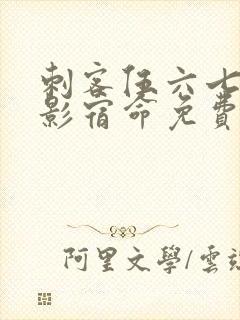 刺客伍六七
影宿命免費
阿里文學/雲